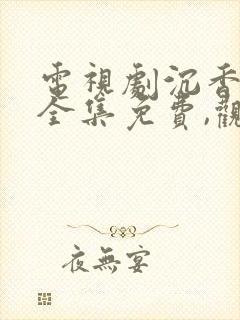 電視劇沉香
全集免費,觀
夜無宴